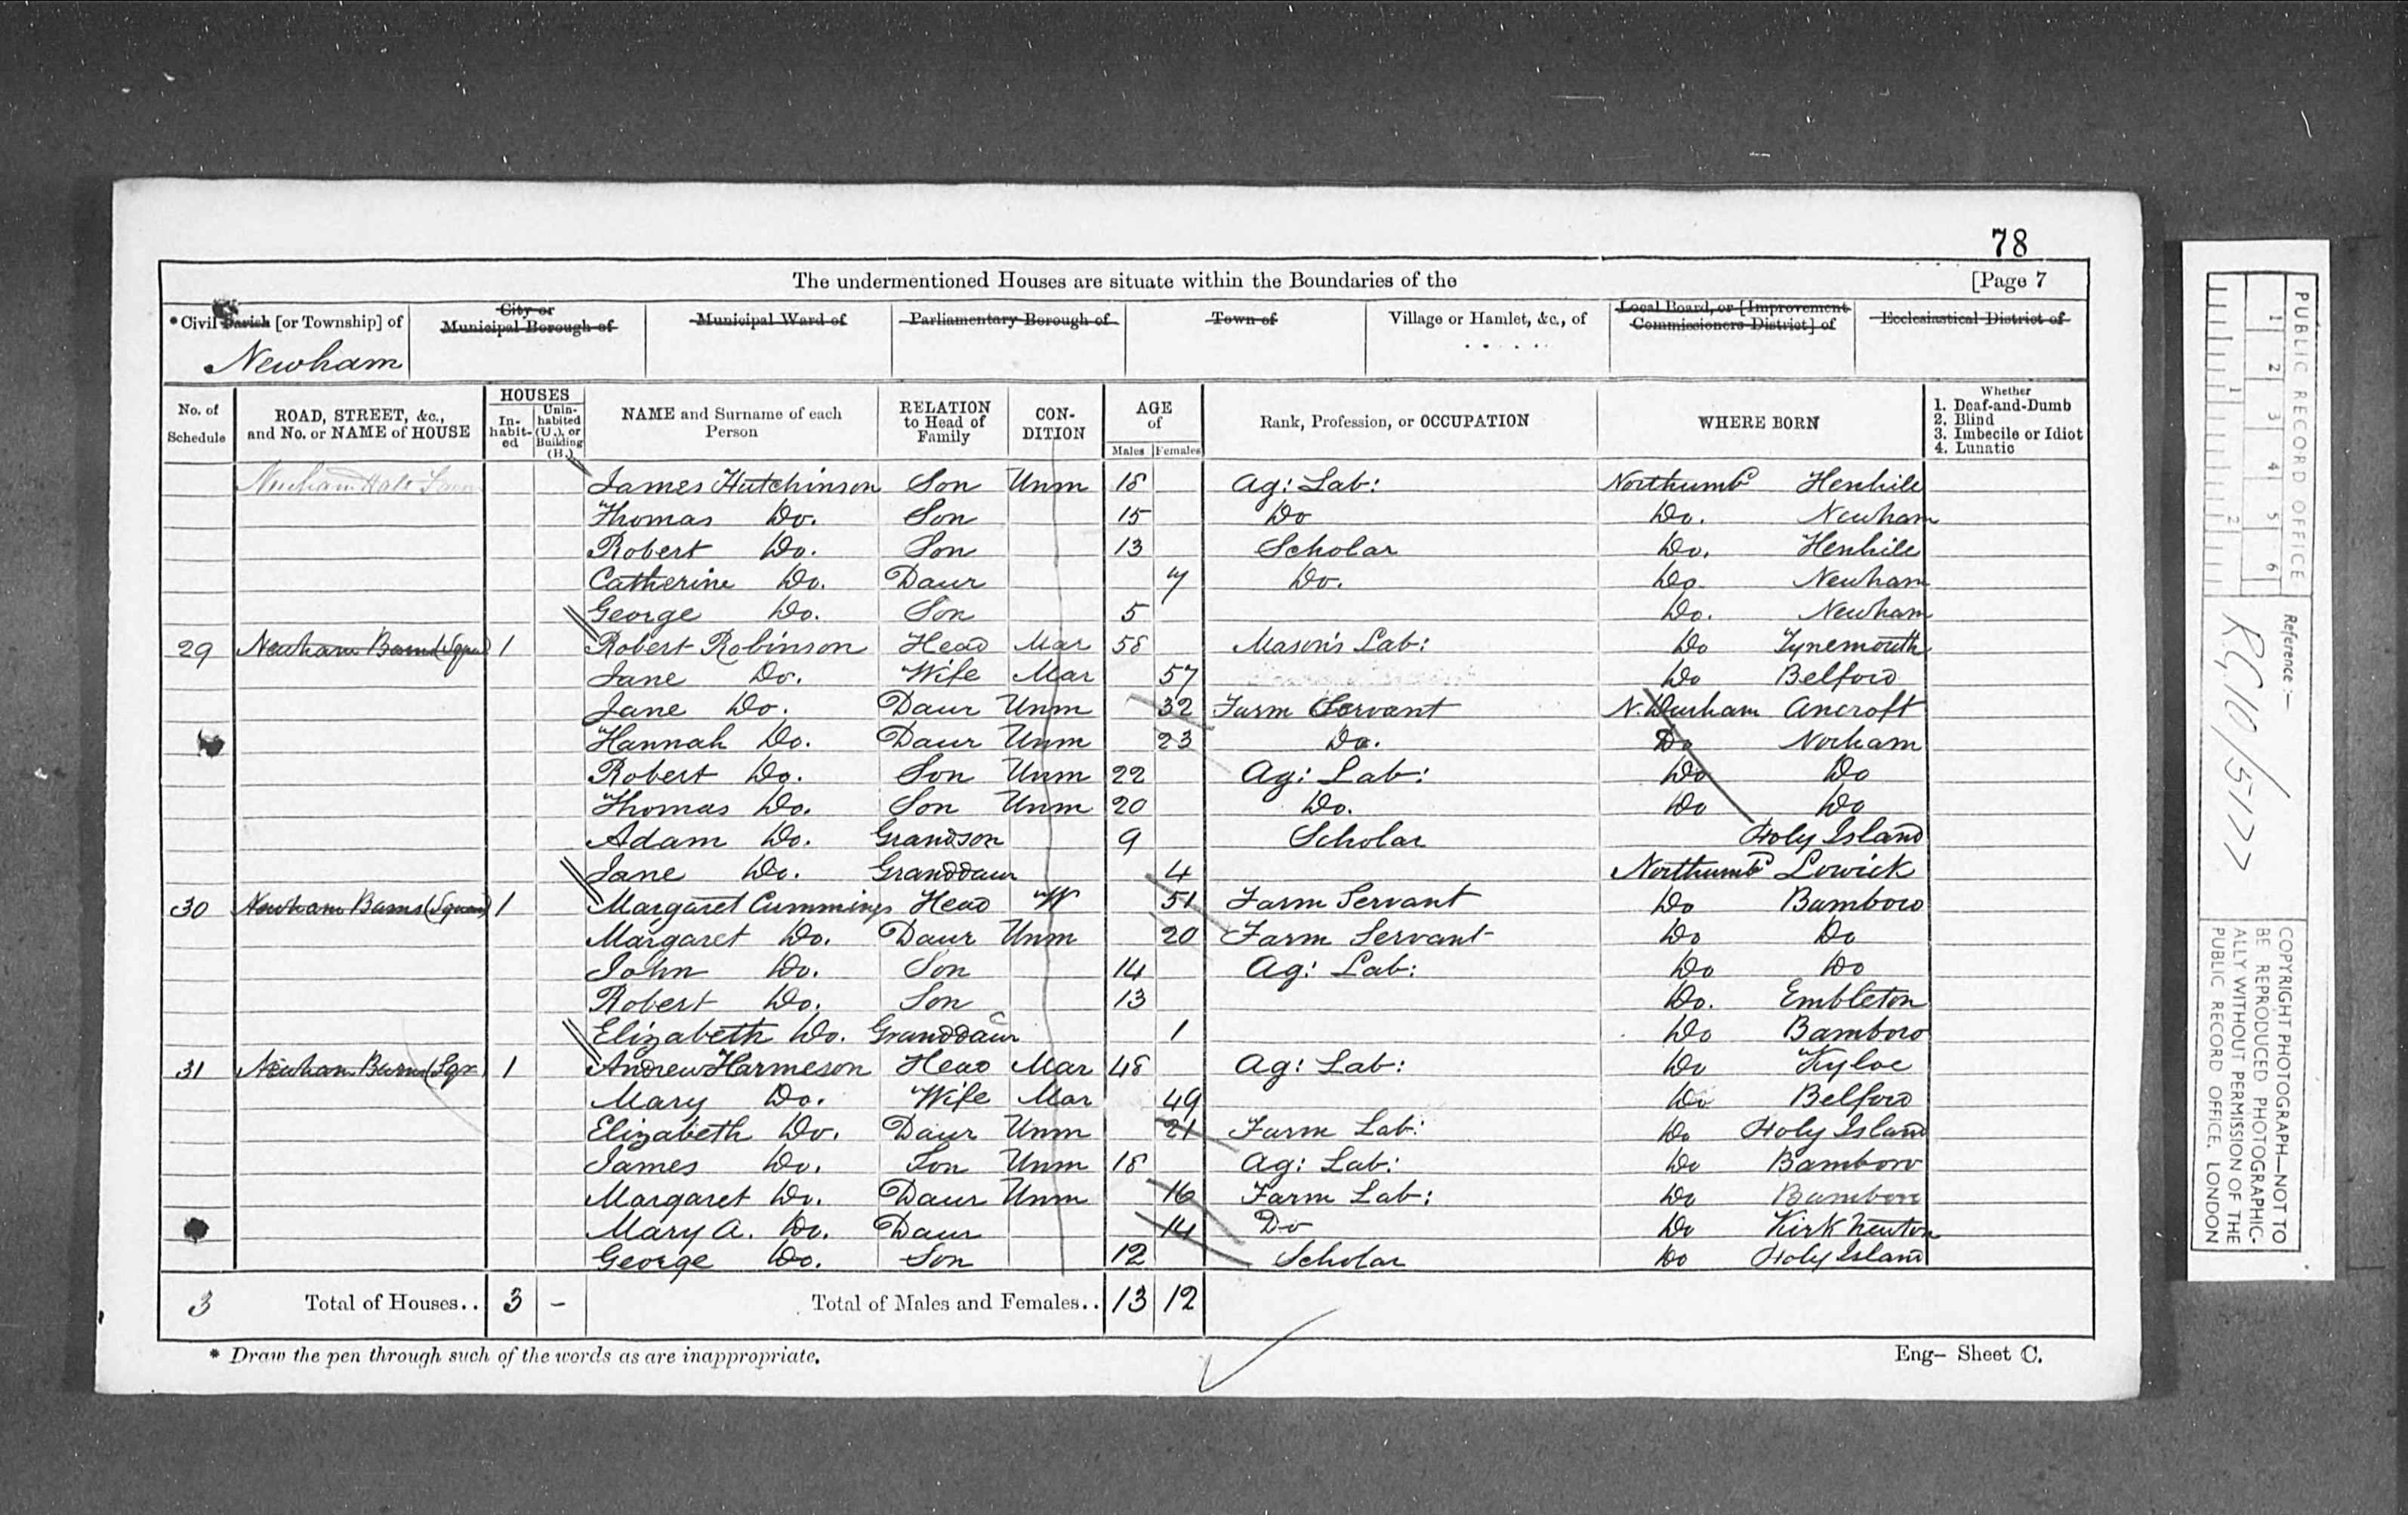 78
The undermentioned Houses are situate within the Boundaries of the [Page 7
*Civil Parish [or Township] of
Newham
City or Municipal Borough of
Municipal Ward of
Parliamentary Borough of
Town of
Village or Hamlet, &c., of
Local Board, or [Improvement Commissioners District] of
Ecclesiastical District of
No. of Schedule
ROAD, STREET, &c., and No. or NAME of HOUSE
HOUSES
In-habit-ed
Unin-habited (U.), or Building (B.)
NAME and Surname of each Person
RELATION to Head of Family
CON-DITION
AGE of
Males Females
Rank, Profession, or OCCUPATION
WHERE BORN
Whether
1. Deaf-and-Dumb
2. Blind
3. Imbecile or Idiot
4. Lunatic
Newham Hall Farm James Hutchinson Son Unm 18 Ag: Lab: Northumbd Henhill
Thomas Do. Son 15 Do Do. Newham
Robert Do. Son 13 Scholar Do. Henhill
Catherine Do. Daur 7 Do. Do. Newham
George Do. Son 5 Do. Newham
29 Newham Barns (Square) 1 Robert Robinson Head Mar 58 Mason's Lab: Do Tynemouth
Jane Do. Wife Mar 57 Do Belford
Jane Do. Daur Unm 32 Farm Servant N. Durham Ancroft
Hannah Do. Daur Unm 23 Do. Do Norham
Robert Do. Son Unm 22 Ag: Lab: Do Do
Thomas Do. Son Unm 20 Do. Do Do
Adam Do. Grandson 9 Scholar Holy Island
Jane Do. Granddaur 4 Northumbd Lowick
30 Newham Barns (Square) 1 Margaret Cummings Head W 51 Farm Servant Do Bamboro
Margaret Do. Daur Unm 20 Farm Servant Do Do
John Do. Son 14 Ag: Lab: Do Do
Robert Do. Son 13 Do. Embleton
Elizabeth Do. Granddaur 1 Do Bamboro
31 Newham Barns (Sqr) 1 Andrew Harmeson Head Mar 48 Ag: Lab: Do Kyloe
Mary Do. Wife Mar 49 Do Belford
Elizabeth Do. Daur Unm 21 Farm Lab: Do Holy Island
James Do. Son Unm 18 Ag: Lab: Do Bamboro
Margaret Do. Daur Unm 16 Farm Lab: Do Bamboro
Mary A. Do. Daur 14 Do Do Kirk Newton
George Do. Son 12 Scholar Do Holy Island
3 Total of Houses.. 3 – Total of Males and Females.. 13 12
* Draw the pen through such of the words as are inappropriate.
Eng- Sheet C.
PUBLIC RECORD OFFICE
1 2 3 4 5 6
1 2
Reference:-
RG 10/5177
COPYRIGHT PHOTOGRAPH—NOT TO
BE REPRODUCED PHOTOGRAPHIC-
ALLY WITHOUT PERMISSION OF THE
PUBLIC RECORD OFFICE, LONDON